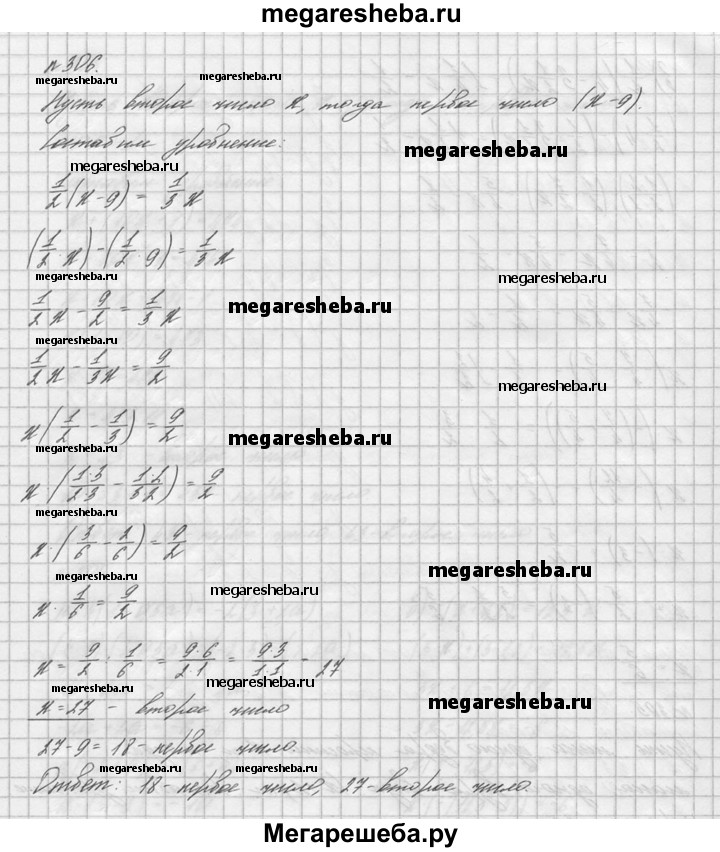 megaresheba.ru
№ 306.
megaresheba.ru megaresheba.ru
Пусть второе число x, тогда первое число (x-9).
Составим уравнение:
megaresheba.ru
megaresheba.ru
1/2 (x-9) = 1/3 x
(1/2 · x) - (1/2 · 9) = 1/3 x
megaresheba.ru megaresheba.ru
1/2 x - 9/2 = 1/3 x
megaresheba.ru
megaresheba.ru
1/2 x - 1/3 x = 9/2
megaresheba.ru
x (1/2 - 1/3) = 9/2
megaresheba.ru
megaresheba.ru
x · (1·3/2·3 - 1·2/3·2) = 9/2
megaresheba.ru
x · (3/6 - 2/6) = 9/2
megaresheba.ru
megaresheba.ru
megaresheba.ru
x · 1/6 = 9/2
x = 9/2 : 1/6 = 9·6/2·1 = 9·3/1·1 = 27
megaresheba.ru megaresheba.ru
megaresheba.ru
x = 27 - второе число
27-9=18 - первое число.
megaresheba.ru megaresheba.ru
Ответ: 18 - первое число, 27 - второе число.
Мегарешеба.ру